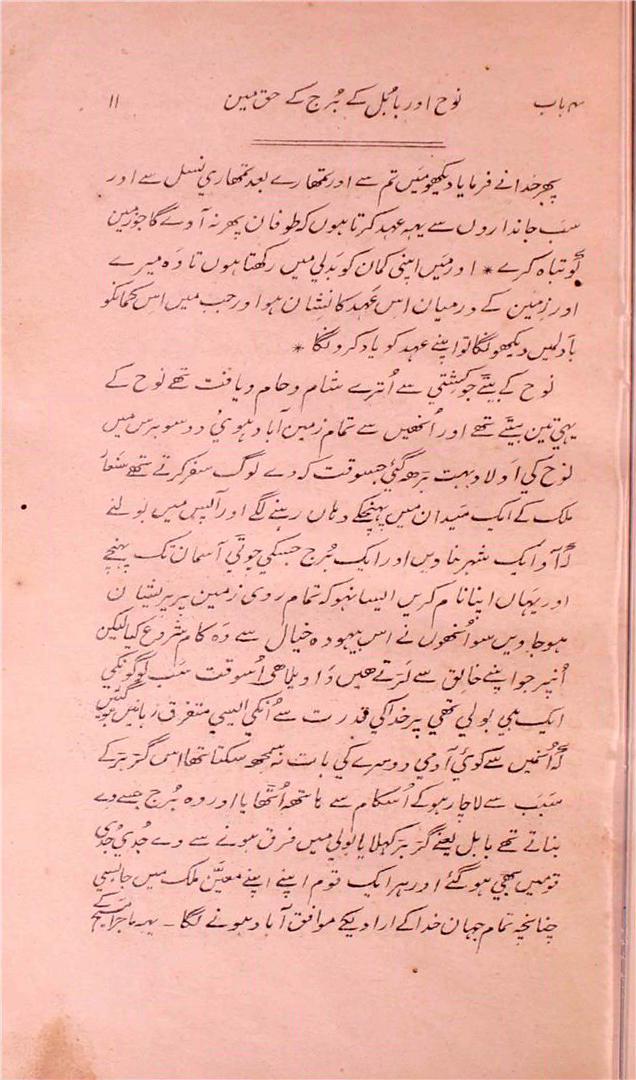 ۳ باب نوح اور بابل کے بُرج کے حق مین ۱۱
پھر خدا نے فرمایا دیکھو مَیں تم سے اور تمھارے بعد تمھاري نسل سے اور
سَب جانداروں سے یہہ عہد کرتا ہوں کہ طوفان پھر نہ آوے گا جو زمین
کو تباہ کرے * اور مَیں اپنی کمان کو بَدلي میں رکھتا ہوں تا وَہ میرے
اور زمین کے درمیان اس عَہد کا نِشان ہو اور جب میں اس کمانکو
بادلمیں دیکھونگا تو اپنے عہد کو یاد کرونگا *
نوح کے بیٹے جو کِشتي سے اُترے شام و حام و یافت تھے نوح کے
یہي تین بیٹے تھے اور اُنھیں سے تمام زمین آباد ہوئي دو سو برس میں
نوح کي اَولاد بہت بَڑھ گئي جسوقت کہ وے لوگ سفر کرتے تھے سنعار
ملک کے ایک مَیدان میں پہنچکے وہاں رہنے لگے اور آپس میں بولنے
کہ آو ایک شہر بناویں اور ایک بُرج جسکي چوٹي آسمان تک پہنچے
اور یہاں اپنا نام کریں ایسا نہو کہ تمام روی زمین پر پریشان
ہو جاویں سو اُنھوں نے اس بیہودہ خیال سے وَہ کام شُروع کیا لیکن
اُنپر جو اپنے خالِق سے لڑتے ھیں وَاویلا ھی اُسوقت سَب لوگونکي
ایک ہي بولي تھي پر خدا کي قدرت سے اُنکي ایسي متفرق زبانیں ہو گئیں
کہ اُنمیں سے کوئي آدمي دوسرے کي بات نہ سمجھ سکتا تھا اسي گڑبڑ کے
سَبَب سے لاچار ہو کے اُسکام سے ہاتھہ اُٹھایا اور وہ بُرج جسے وے
بناتے تھے بابل یعنے گڑبڑ کہلایا بولي میں فرق ہونے سے وے جُدي جُدي
قومیں بھي ہو گئے اور ہر ایک قوم اپنے اپنے معیّن ملک میں جا بسي
چنانچہ تمام جہان خدا کے ارادیکے موافق آباد ہونے لگا ۔ یہہ ماجرا مسیح کے